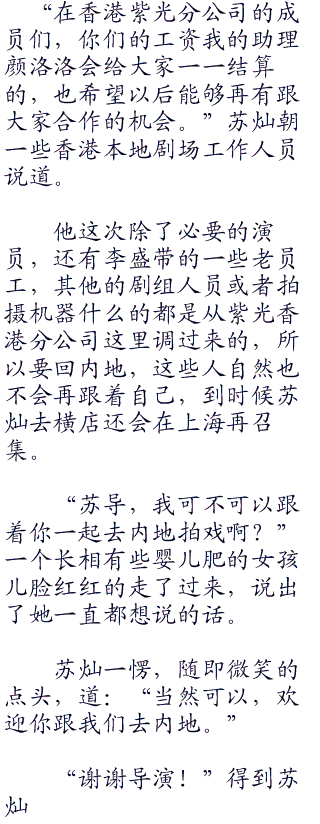 “在香港紫光分公司的成
员们，你们的工资我的助理
颜洛洛会给大家一一结算
的，也希望以后能够再有跟
大家合作的机会。”苏灿朝
一些香港本地剧场工作人员
说道。
他这次除了必要的演
员，还有李盛带的一些老员
工，其他的剧组人员或者拍
摄机器什么的都是从紫光香
港分公司这里调过来的，所
以要回内地，这些人自然也
不会再跟着自己，到时候苏
灿去横店还会在上海再召
集。
“苏导，我可不可以跟
着你一起去内地拍戏啊？”
一个长相有些婴儿肥的女孩
儿脸红红的走了过来，说出
了她一直都想说的话。
苏灿一愣，随即微笑的
点头，道：“当然可以，欢
迎你跟我们去内地。”
“谢谢导演！”得到苏
灿